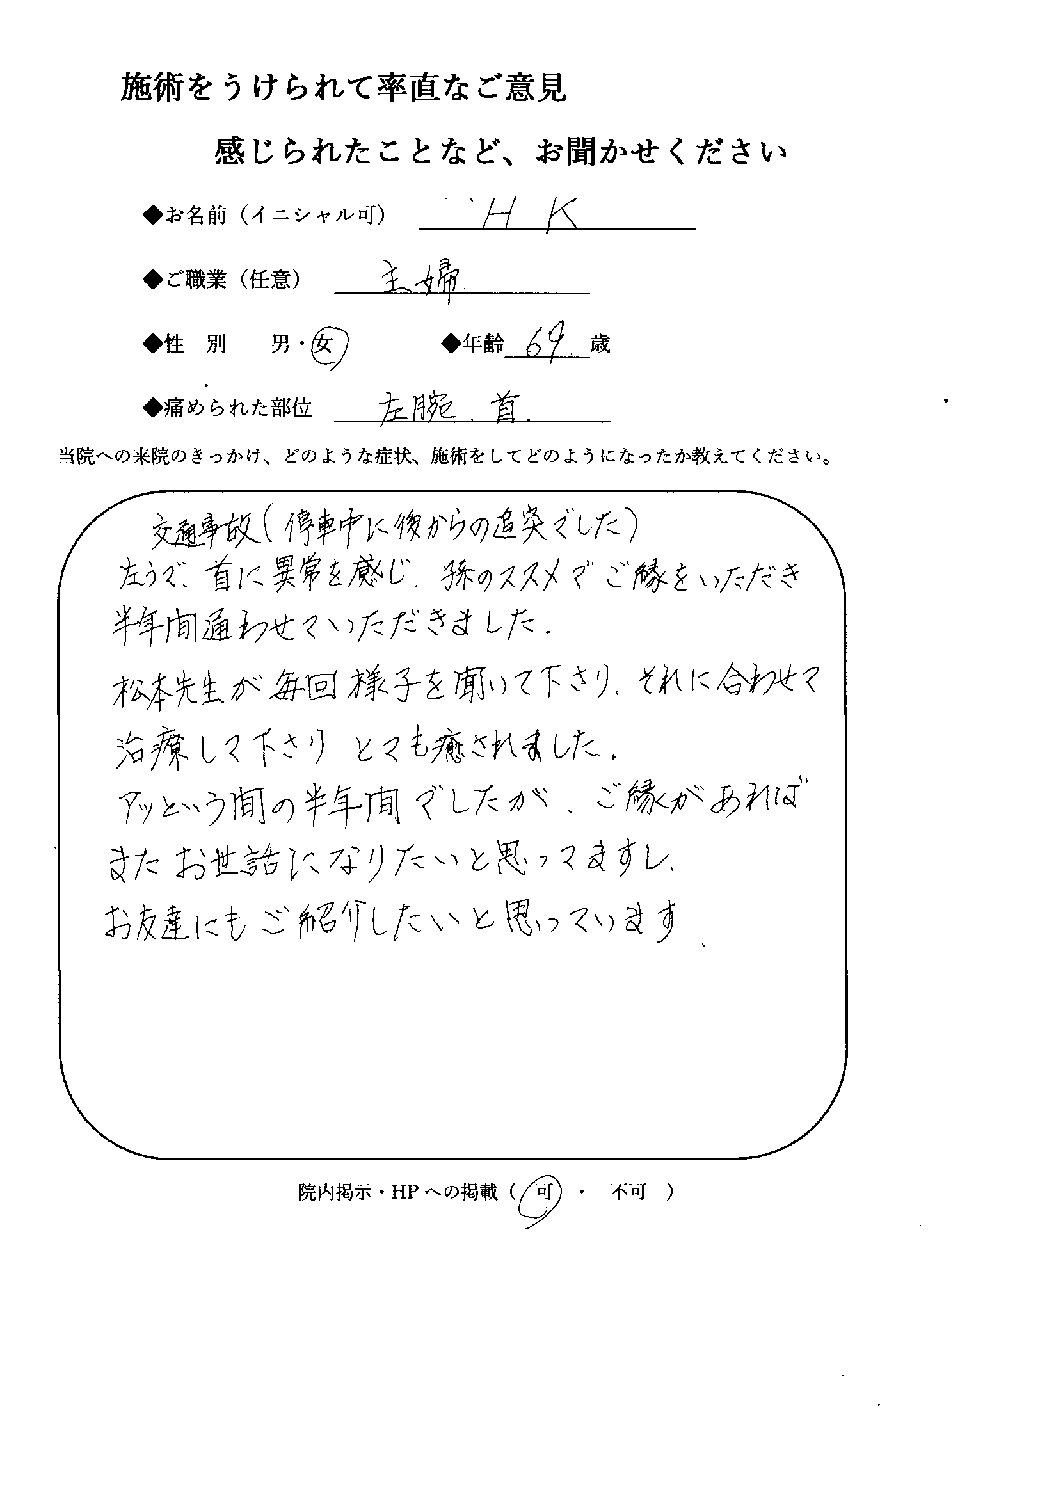 施術をうけられて率直なご意見
感じられたことなど、お聞かせください
◆お名前（イニシャル可） H K
◆ご職業（任意） 主婦
◆性 別 男・女 ◆年齢 69 歳
◆痛められた部位 左腕．首．
当院への来院のきっかけ、どのような症状、施術をしてどのようになったか教えてください。
交通事故(停車中に後からの追突でした)
左うで．首に異常を感じ．孫のススメでご縁をいただき
半年間通わせていただきました．
松本先生が毎回様子を聞いて下さり．それに合わせて
治療して下さり とても癒されました．
アッという間の半年間でしたが、ご縁があれば
またお世話になりたいと思ってますし．
お友達にもご紹介したいと思っています．
院内掲示・HPへの掲載（ 可 ・ 不可 ）